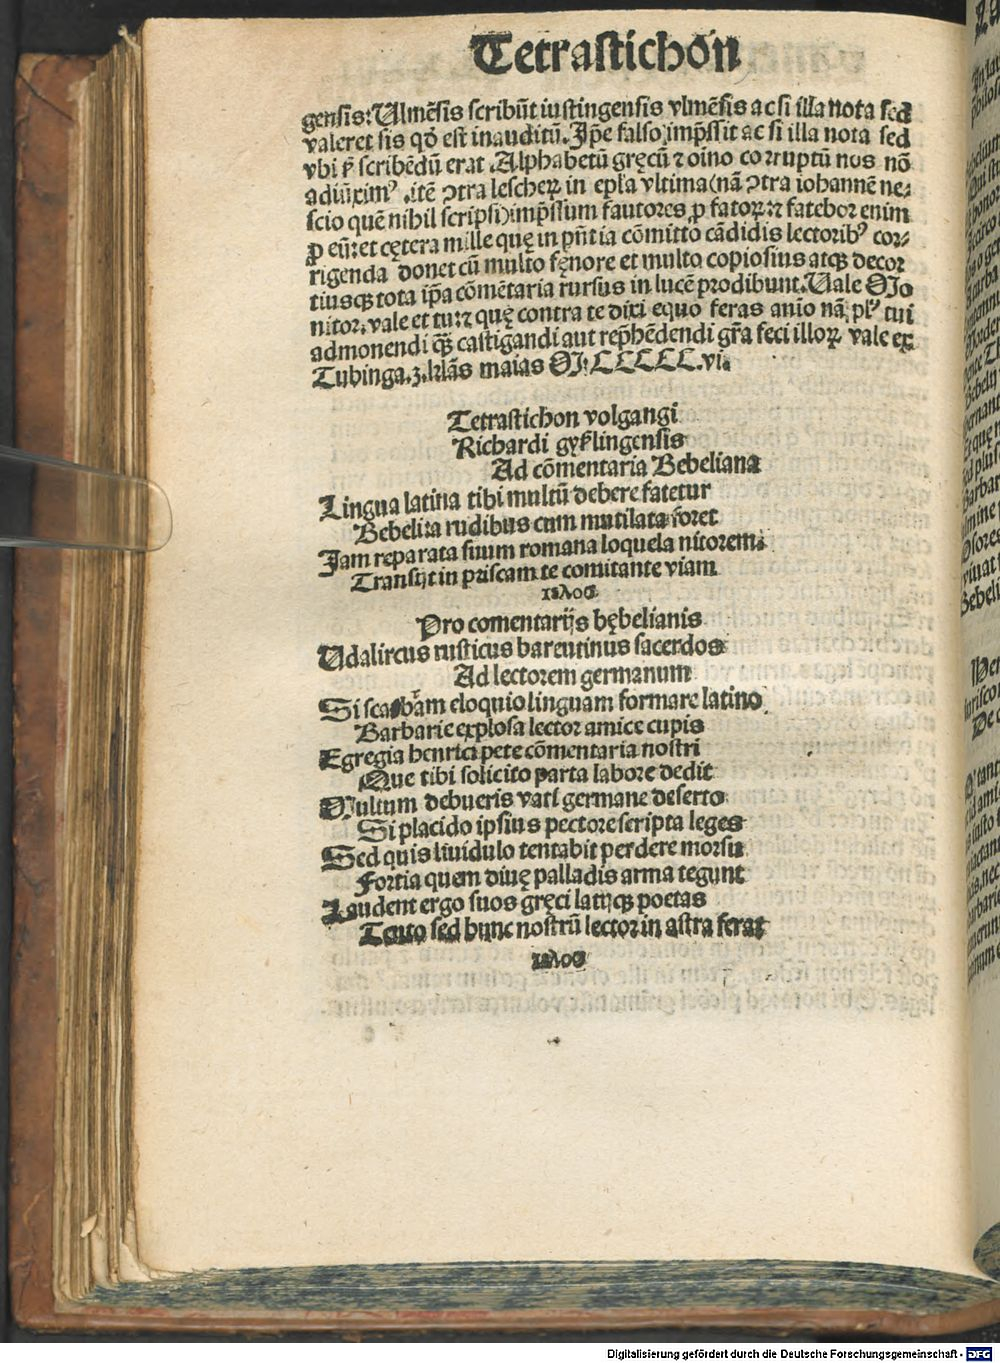 Tetrastichon
gensis: Ulmēsis scribūt iustingensis vlmēsis ac si illa nota sed
valeret sis qđ est inauditū. Ip̄e falso imp̄ssit ac si illa nota sed
vbi scribēdū erat. Alphabetū gręcū ⁊ oīno corruptū nos nō
adiūximꝰ. itē ↄtra lescherꝫ in epl̄a vltima (nā ↄtra iohannē ne⸗
scio quē nihil scripsi) imp̄ssum fautores ꝓ fatorꝫ: ⁊ fatebor enim
ꝓ eū: et cętera mille quę in pn̄tia cōmitto cādidis lectoribꝰ cor⸗
rigenda donec cū multo fęnore et multo copiosius atqꝫ decor
tiusqꝫ tota ip̄a cōmētaria rursus in lucē prodibunt. Uale Mo
nitor, vale et tu: ⁊ quę contra te dixi equo feras aīo nā plꝰ tui
admonendi qꝫ castigandi aut rep̄hēdendi gr̄a feci illoꝝ vale ex
Tubinga. 3. kl̄as maias M. CCCCC. vi.
Tetrastichon volgangi
Richardi gyslingensis
Ad cōmentaria Bebeliana
Lingua latina tibi multū debere fatetur
Bebeli: a rudibus cum mutilata foret
Jam reparata suum romana loquela nitorem:
Transijt in priscam te comitante viam
τελος
Pro comentarijs bębelianis
Udalircus rusticus barcutinus sacerdos
Ad lectorem germanum
Si scabram eloquio linguam formare latino
Barbarie explosa lector amice cupis
Egregia henrici pete cōmentaria nostri
Que tibi solicito parta labore dedit
Multum debueris vati germane deserto
Si placido ipsius pectore scripta leges
Sed quis liuidulo tentabit perdere morsu
Fortia quem diuę palladis arma tegunt
Laudent ergo suos gręci latijqꝫ poetas
Teuto sed hunc nostrū lector in astra ferat
τελος
Digitalisierung gefördert durch die Deutsche Forschungsgemeinschaft - DFG